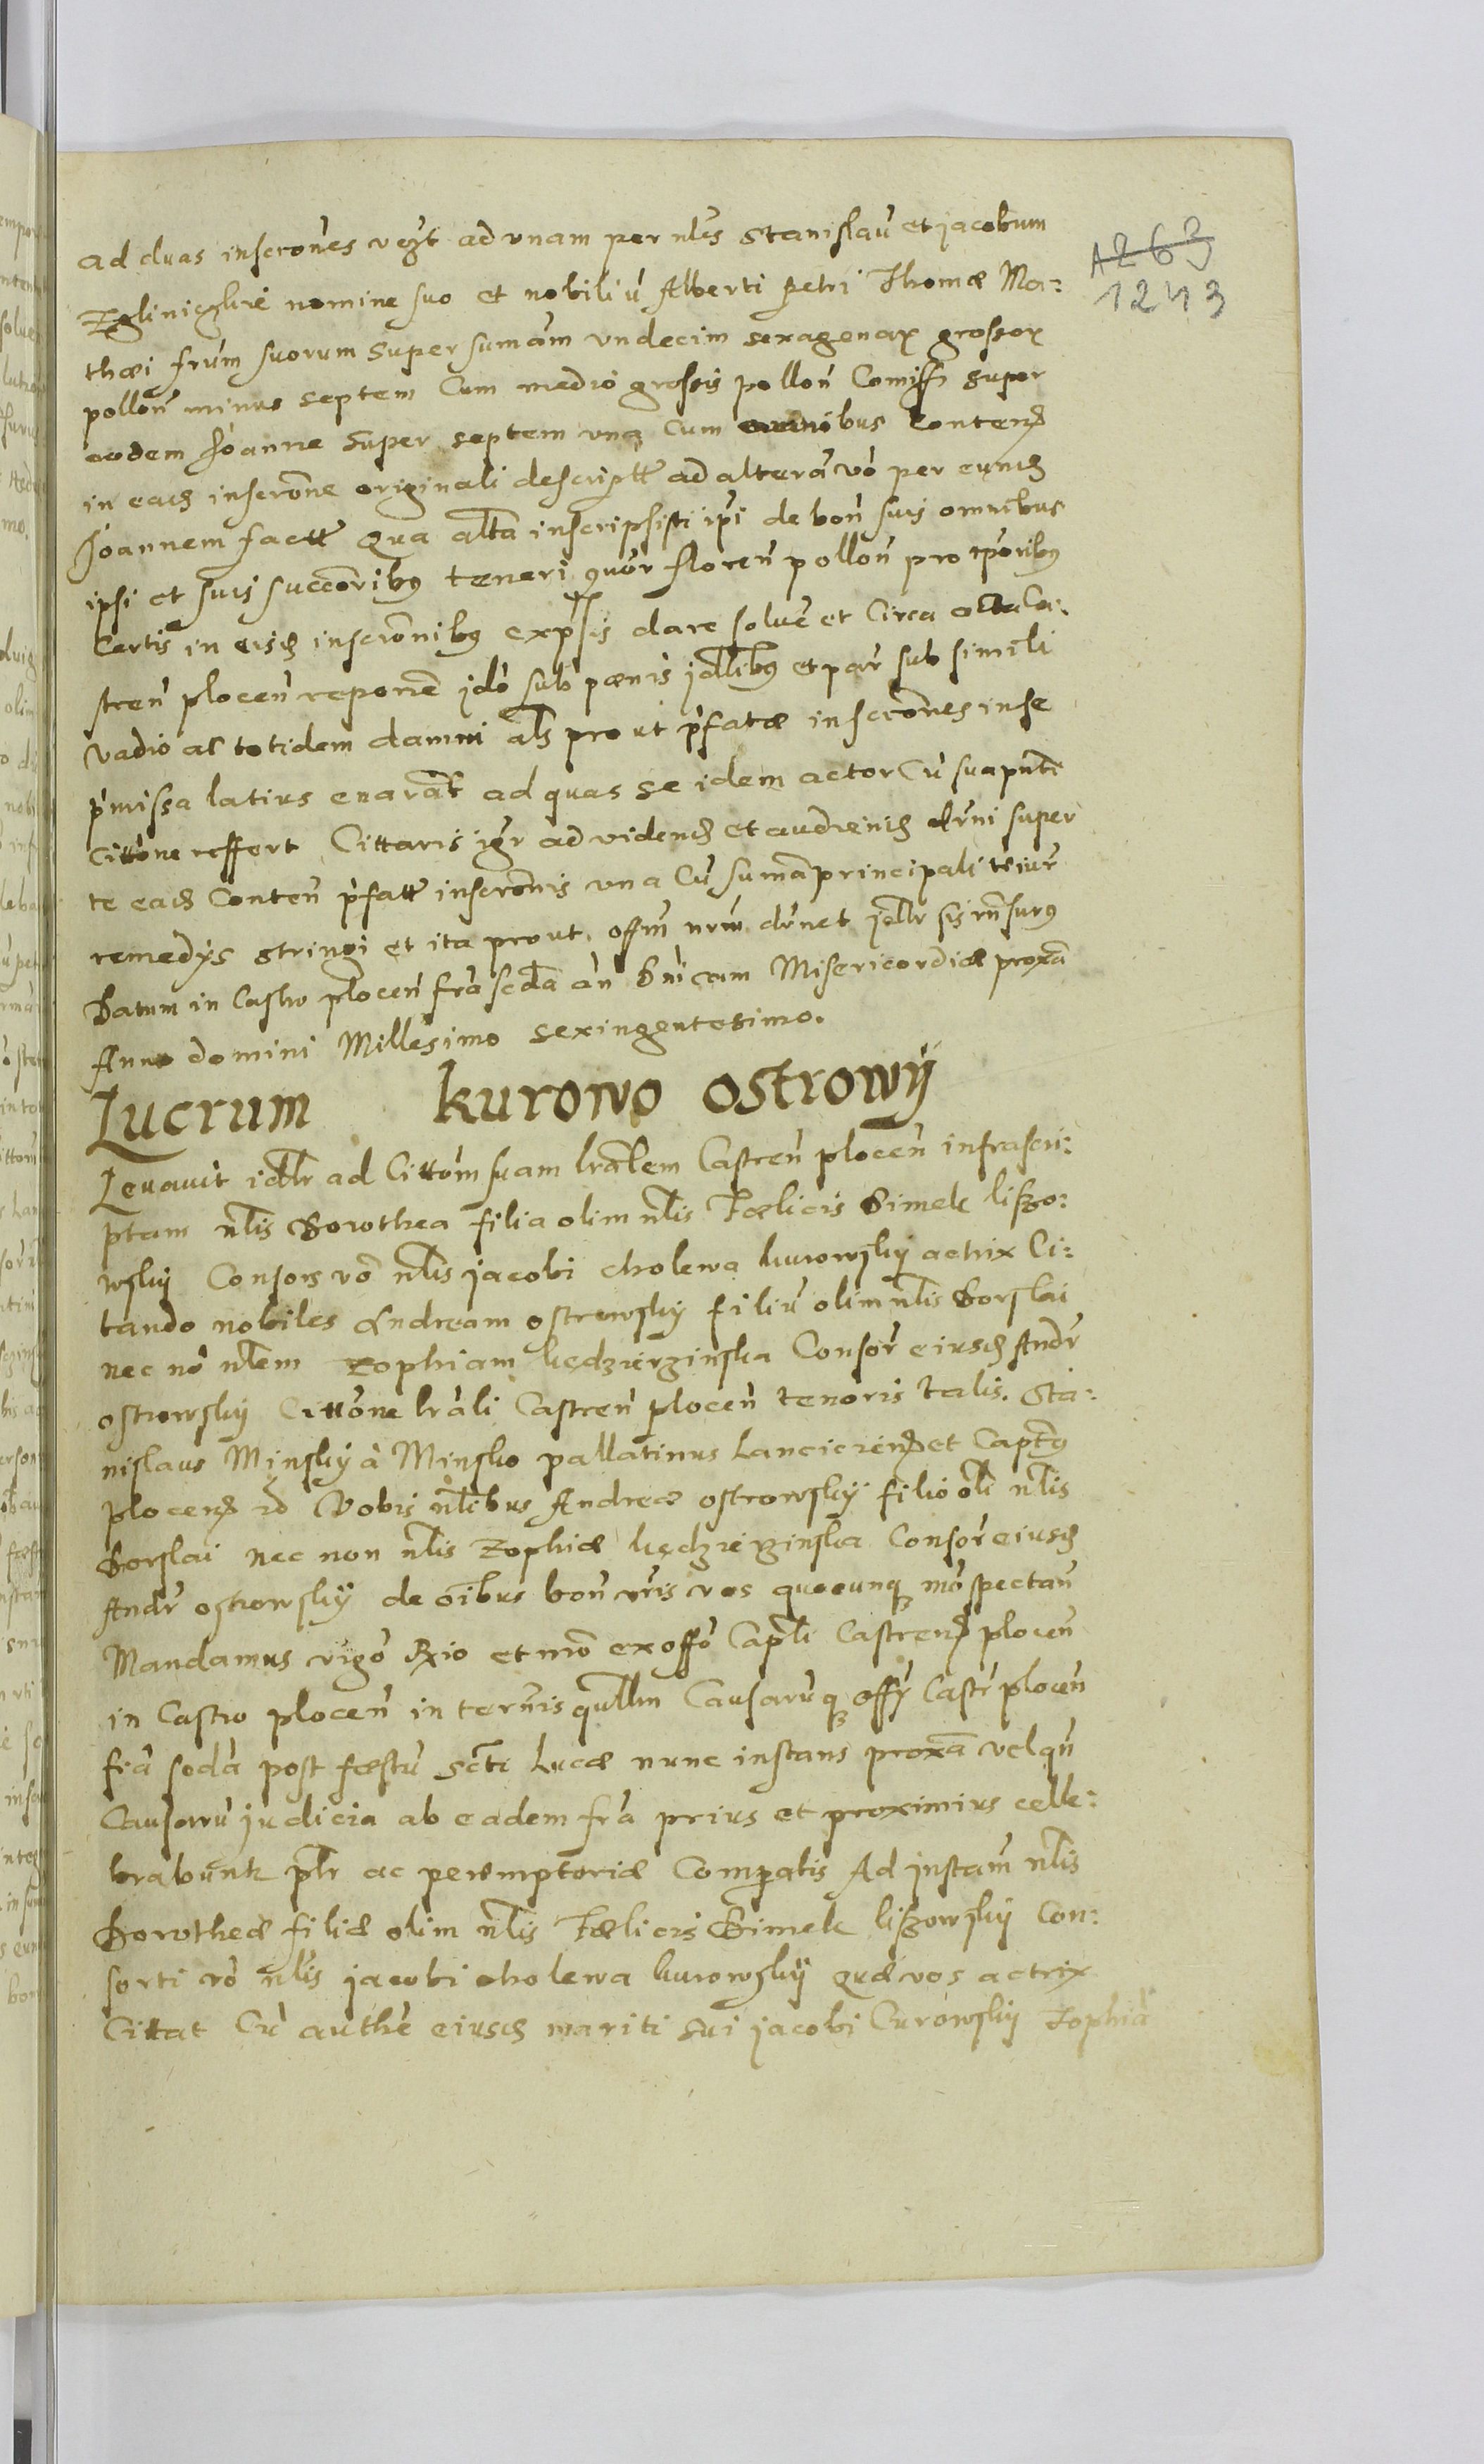 ad duas inscrones vegt ad vnam per nles Stanislau et jacobum
1263
1243
Zglinięzkie nomine suo et nobiliu Alberti Petri Thomæ Ma:
thæi frum suorum super sumam vndecim sexagenar grossor
pollon minus septem Cum medio grossis pollon Comiss super
eodem Joanne super septem vna Cum omnibus Conten
in ead inscrone originali descriptt ad altera vo per eund
Joannem factt Qua alta inscripsisti ipi de bon suis omnibus
ipsi et suis succoribus teneri quor floren pollon pro tporibus
Certis in eisd inscronibus expssis dare solue et Circa acta Ca:
stren plocen reponē jdo sub pænis jdlibus et par sub simili
vadio ac totidem damni als prout pfatæ inscrones in se
pmissa latius enarat ad quas se idem actor Cu sua pnte
Cittone reffert Cittaris igr ad videnda et audiend drni super
te ead Conten pfatt inscronis vna Cu suma principali iur
remedys stringi et ita prout offm nrm drnet jdlr sis rnsurus
Datum in Castro plocen fra scda an Dnicam Misericordiæ proxa
Anno domini Millesimo sexingentesimo.
Lucrum kurowo ostrowÿ
Levavit jdlr ad Cittom suam lralem Castren plocen infrascri:
ptam nlis Dorothea filia olim nlis Fælicis Simek liszo:
wsky Consors vo nlis jacobi cholewa kurowsky actrix Ci:
tando nobiles Andream ostrowsky filiu olim nlis Borslai
nec no nlem Zophiam kędzierzinska Consor eiusd Andr
ostrowsky Cittone lrali Castren plocen tenoris talis. Sta:
nislaus Minsky à Minsko pallatinus Lancicien et Captus
plocen Vobis nlibus Andreæ ostrowskÿ filio oli nlis
Borslai nec non nlis Zophiæ kędzierzinska Consor eiusd
Andr ostrowskÿ de oibus bon vris vos quocunq mo spectan
Mandamus vigo Rgio et mo ex offo Capli Castren plocen
in Castro plocen in ternis qullm Causaruq offy Castr plocen
fia scda post fæstu Scti Lucæ nunc instans proxa vel qn
Causaru judicia ab eadem fra prius et proximius celle:
brabunt plr ac peremptoriæ Compatis Ad instam nlis
Dorotheæ filiæ olim nlis Fælicis Simek liszowsky Con:
sorti vo nlis jacobi cholewa kurowskÿ quæ vos actrix
Cittat Cu authe eiusd mariti sui jacobi Curowsky Zophia